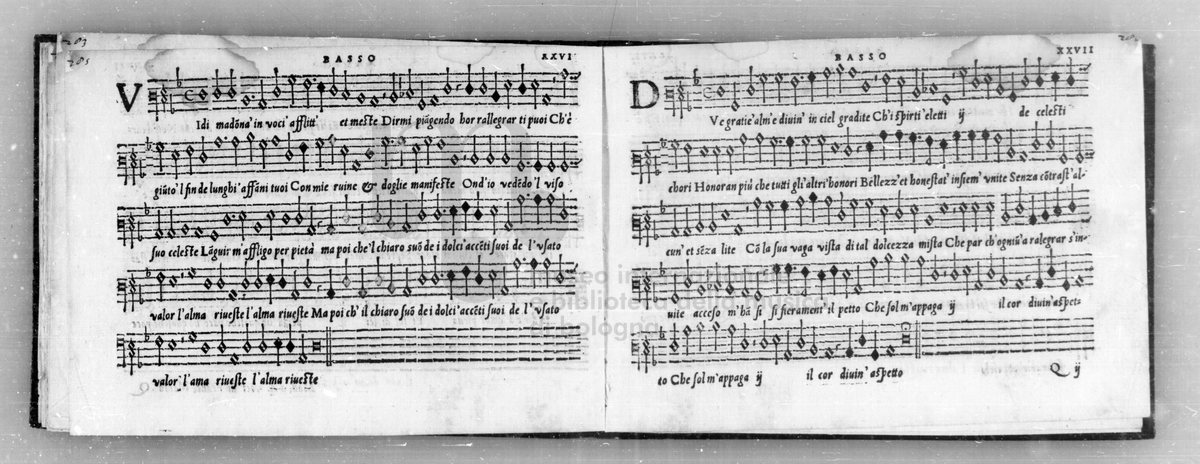 203
205
BASSO
XXVI
V Idi madõna' in voci' afflitt' et meste Dirmi piãgendo hor rallegrar ti puoi Ch'è
giũto' l fin de lunghi' affãni tuoi Con mie ruine & doglie manifeste Ond'io vedẽdo'l viso
suo celeste Lãguir m'affligo per pietà ma poi che'l chiaro suõ de i dolci'accẽti suoi de l'usato
valor l'alma riueste l'alma riueste Ma poi ch'il chiaro suõ de i dolci'accẽti suoi de l'usato
valor'l'ama riueste l'alma riueste
BASSO
XXVII
D Ve gratie'alm'e diuin' in ciel gradite Ch'i spirti'eletti ij de celesti
chori Honoran più che tutti gli'altri'honori Bellezz'et honestat'insiem'unite Senza cõtrast'al-
cun'et sẽza lite Cõ la sua vaga vista di tal dolcezza mista Che par ch'ogniũ'a ralegrar s'in-
uiie acceso m'hà si si fierament'il petto Che sol m'appaga ij il cor diuin'aspet-
to Che sol m'appaga ij il cor diuin'aspetto
Q ij
museo internazionale
e biblioteca della musica
di bologna